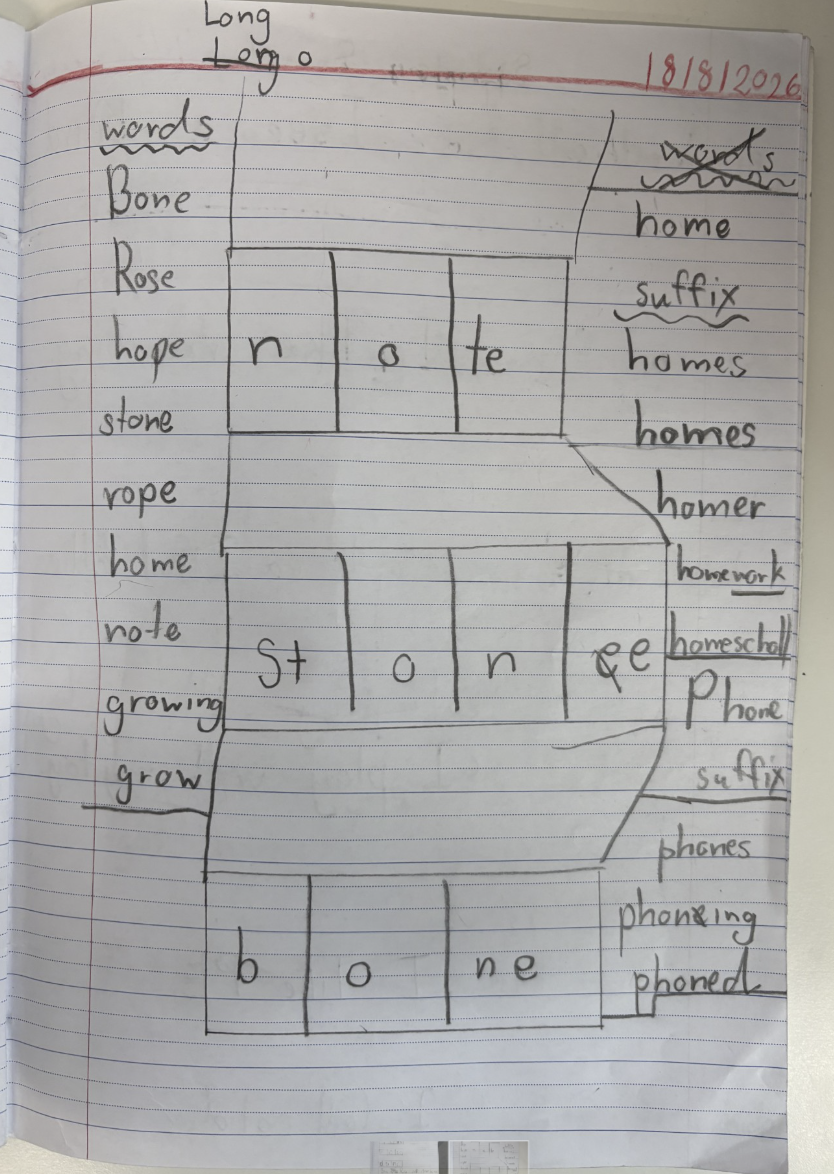 Long
Long o
18/8/2026
words
Bone
Rose
hope
stone
rope
home
note
growing
grow
n o te
St o n ee
b o ne
words
home
suffix
homes
homes
homer
homework
homescholl
Phone
suffix
phones
phoneing
phoned